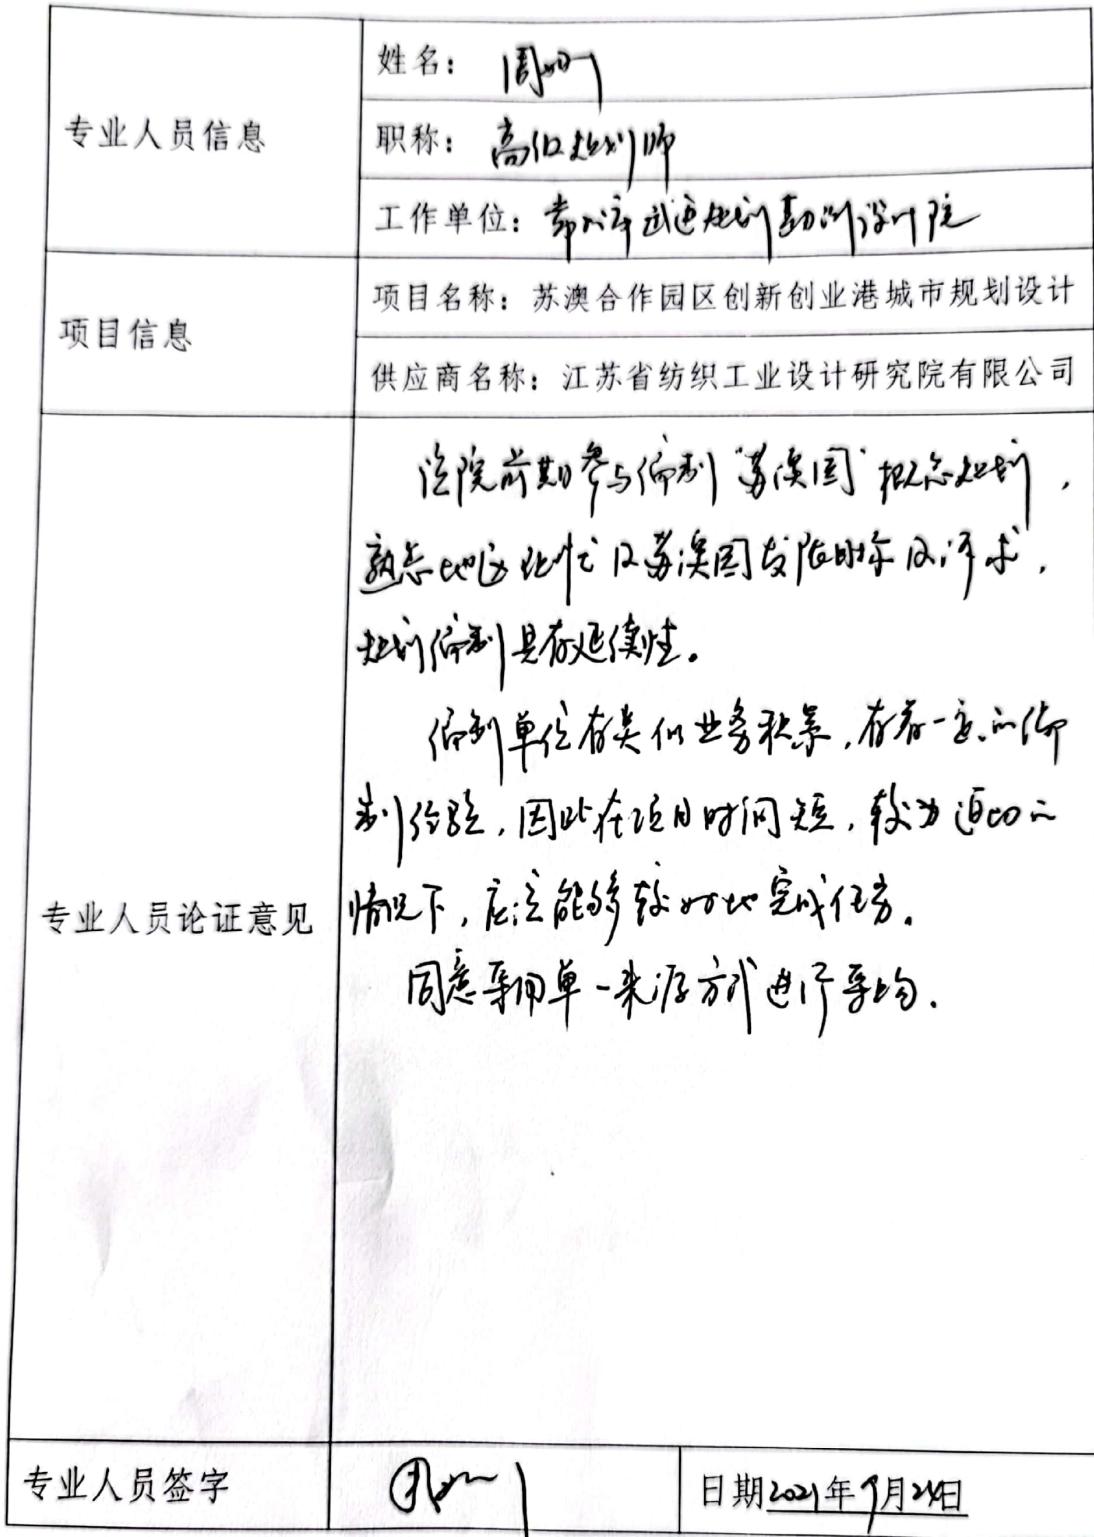 专业人员信息
姓名：周
职称：高级规划师
工作单位：常州市武进规划勘测设计院
项目信息
项目名称：苏澳合作园区创新创业港城市规划设计
供应商名称：江苏省纺织工业设计研究院有限公司
专业人员论证意见
该院前期参与编制“苏澳园”概念规划，
熟悉地区现状及苏澳园发展目标及诉求，
规划编制具有延续性。
编制单位有类似业务积累，有着一定的编
制经验，因此在项目时间短，较为迫切的
情况下，应该能够较好地完成任务。
同意采用单一来源方式进行采购.
专业人员签字
日期2021年9月24日